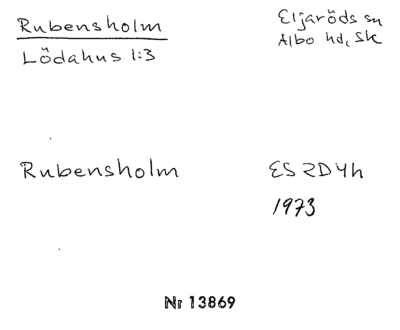 Rubensholm
Lödahus 1:3
Eljaröds sn
Albo hd, Sk
Rubensholm
ES 2D4h
1973
Nr 13869